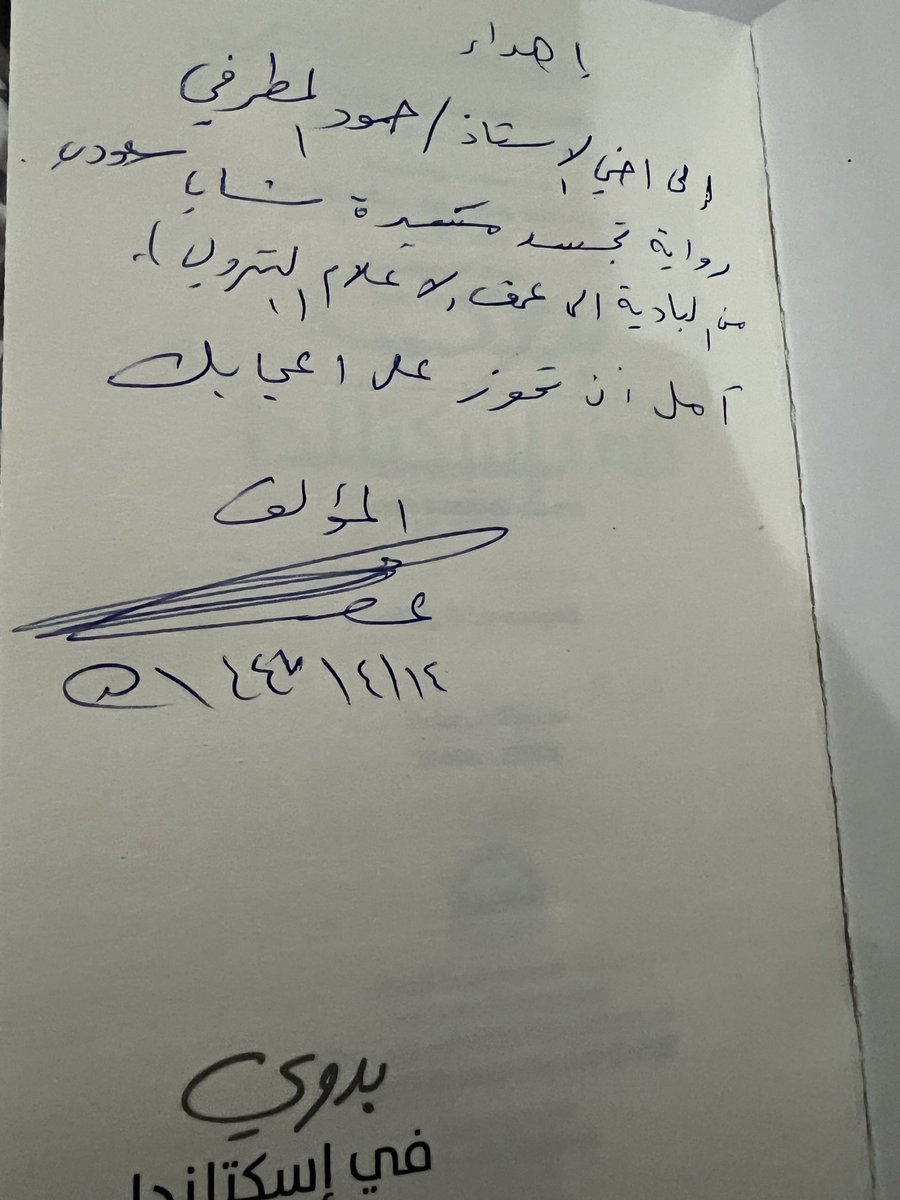 إهداء
إلى اخي الاستاذ / حمود المطرفي
رواية تجسد مسيرة شاب سعودي
من البادية الى عمق الاعلام البترولي).
آمل ان تحوز على اعجابك
المؤلف
١٤٤٣/٤/١٤هـ
بدوي
في إسكتلندا